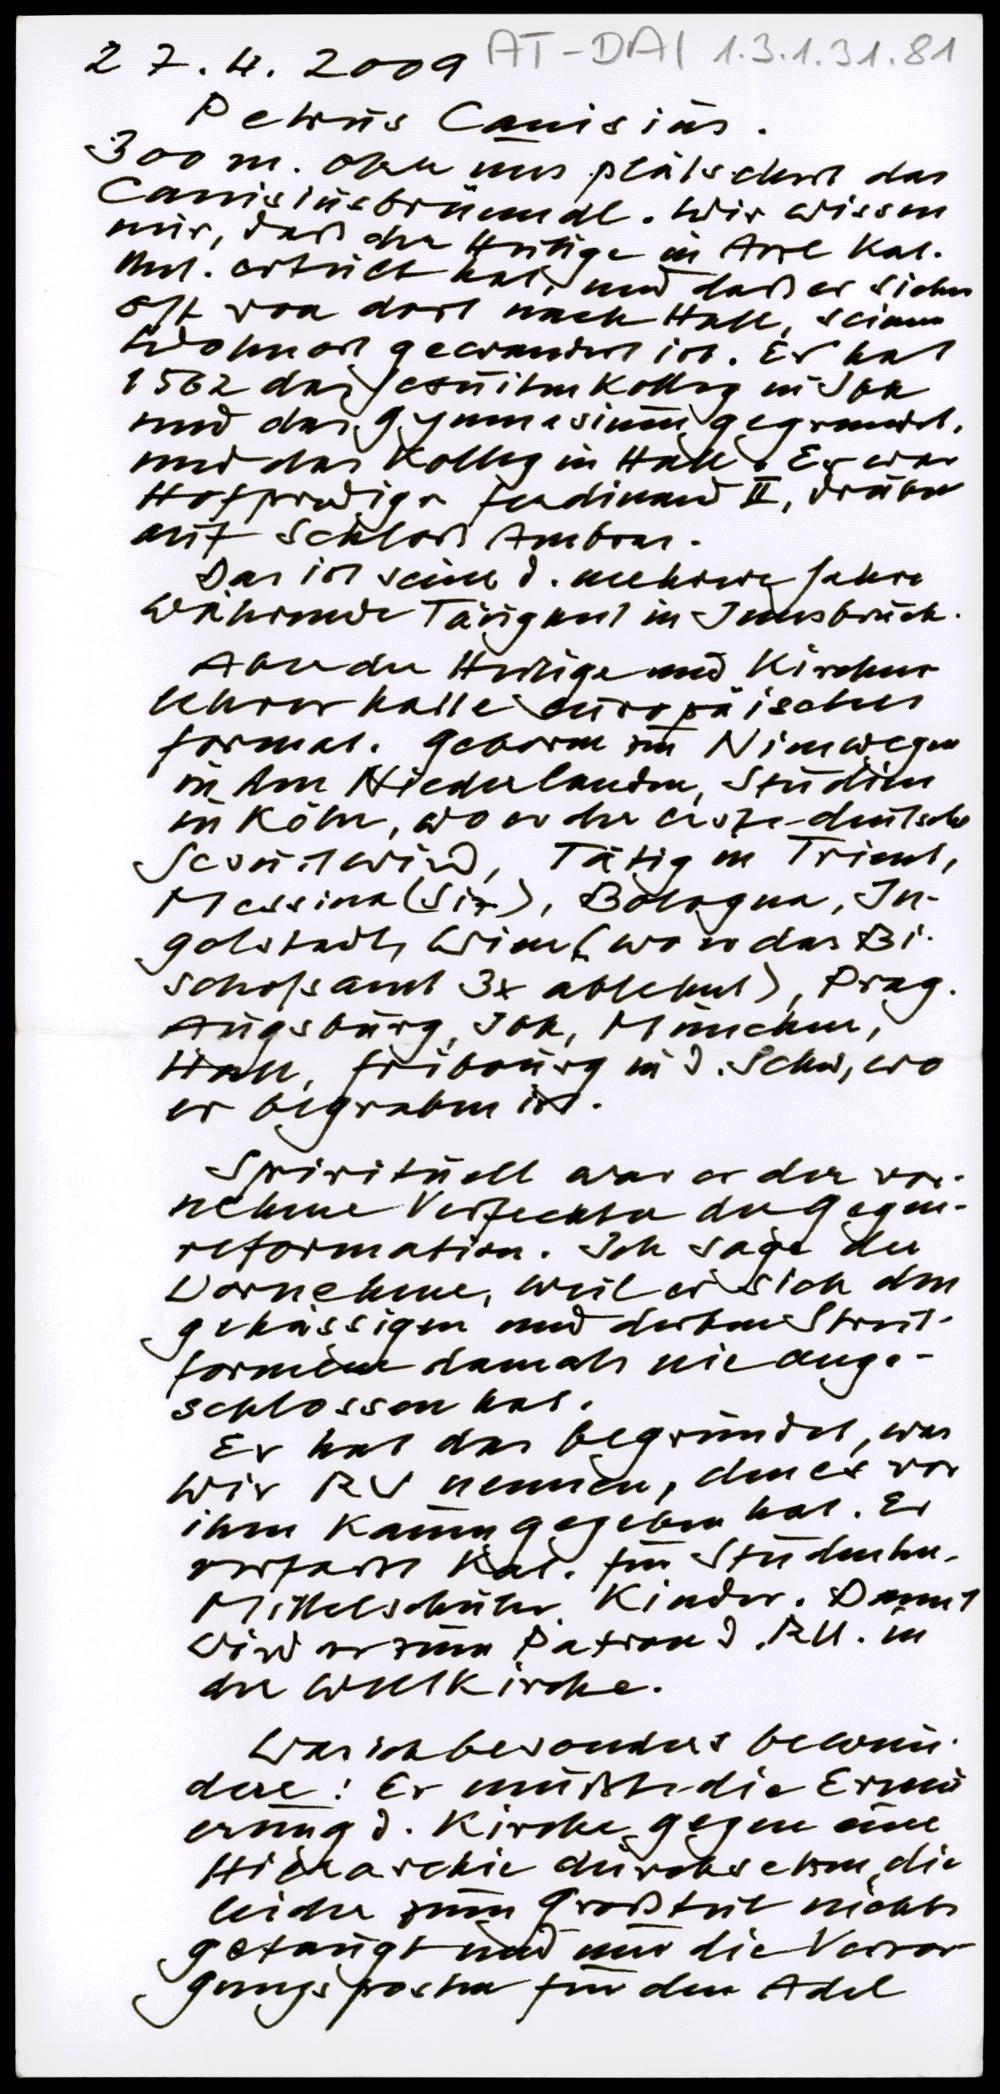 27.4.2009 AT-DAI 1.3.1.31.81
Petrus Canisius.
300 m. ober uns plätschert das
Canisiusbründl. Wir wissen
nur, daß der Heilige in Axl Kat.
Unt. erteilt hat, und daß er sicher
oft von dort nach Hall, seinem
Wohnort gewandert ist. Er hat
1562 das Jesuitenkolleg in Ibk
und das Gymnasium gegründet,
und das Kolleg in Hall. Er war
Hofprediger Ferdinand II, drüben
auf Schloß Ambras.
Das ist seine d. mehrere Jahre
währende Tätigkeit in Innsbruck.
Aber der Heilige und Kirchen
lehrer hatte europäisches
Format. Geboren in Nimwegen
in den Niederlanden, Studien
in Köln, wo er der erste deutsche
Jesuit wird, Tätig in Trient,
Messina (Siz), Bologna, In-
golstadt, Wien (wo er das Bi-
schofsamt 3x ablehnt), Prag.
Augsburg, Ibk, München,
Hall, Fribourg in d. Schw, wo
er begraben ist.
Spirituell war er der vor-
nehme Verfechter der Gegen-
reformation. Ich sage der
Vornehme, weil er sich den
gehässigen und derben Streit-
formen damals nie ange-
schlossen hat.
Er hat das begründet, was
wir RU nennen, den es vor
ihm kaum gegeben hat. Er
verfaßt Kat. für Studenten,
Mittelschüler, Kinder. Damit
wird er zum Patron d. RU. in
der Weltkirche.
Was ich besonders bewun-
dere: Er mußte die Erneu
erung d. Kirche gegen eine
Hierarchie durchsetzen, die
leider zum Großteil nichts
getaugt und nur die Versor
gungsposten für den Adel